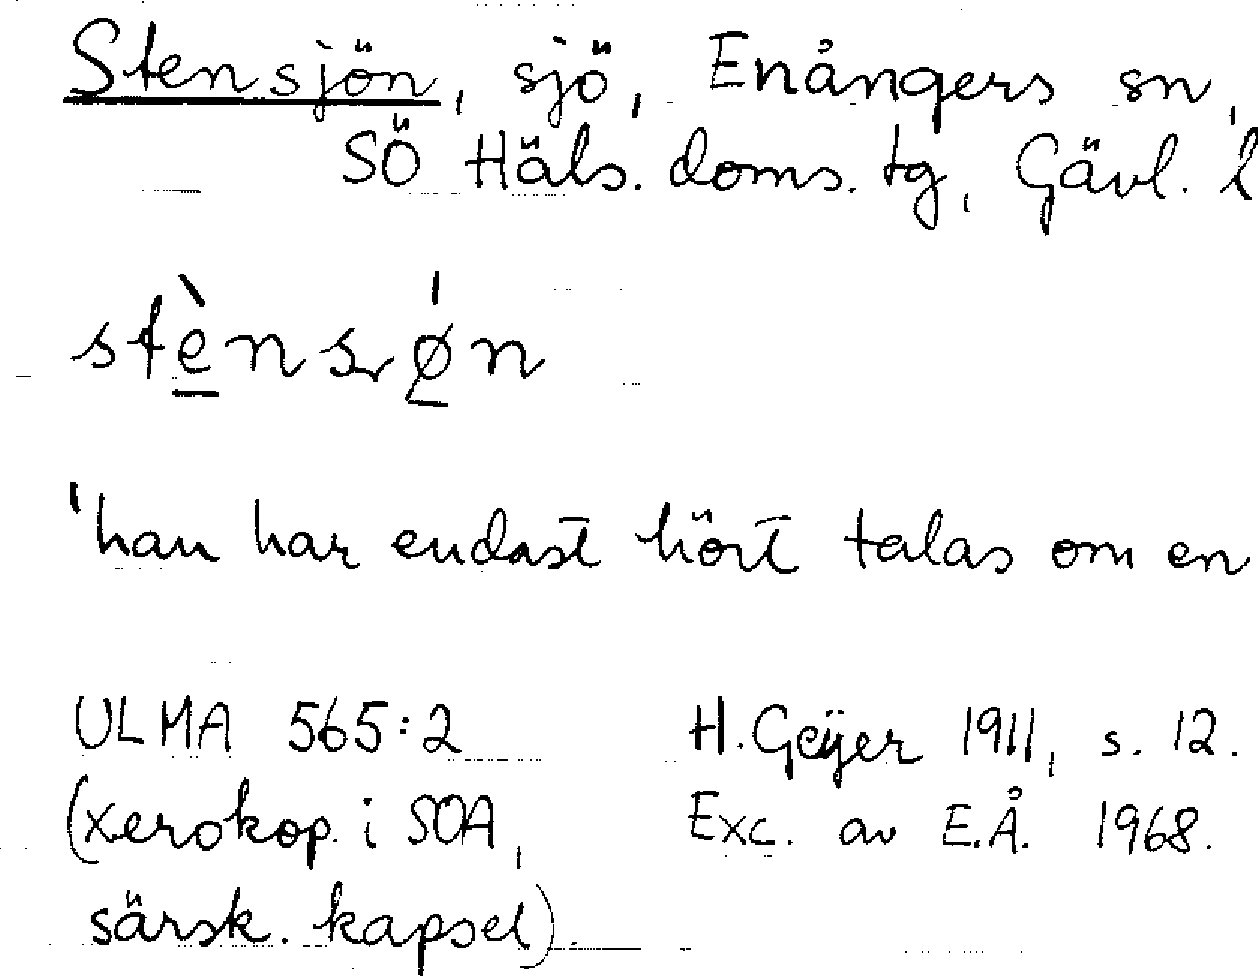 Stensjön, sjö, Enångers sn,
SÖ Häls. doms. tg, Gävl. l
'han har endast hört talas om en
ULMA 565:2
(xerokop. i SOA,
särsk. kapsel).
H. Geijer 1911, s. 12.
Exc. av E.Å. 1968.